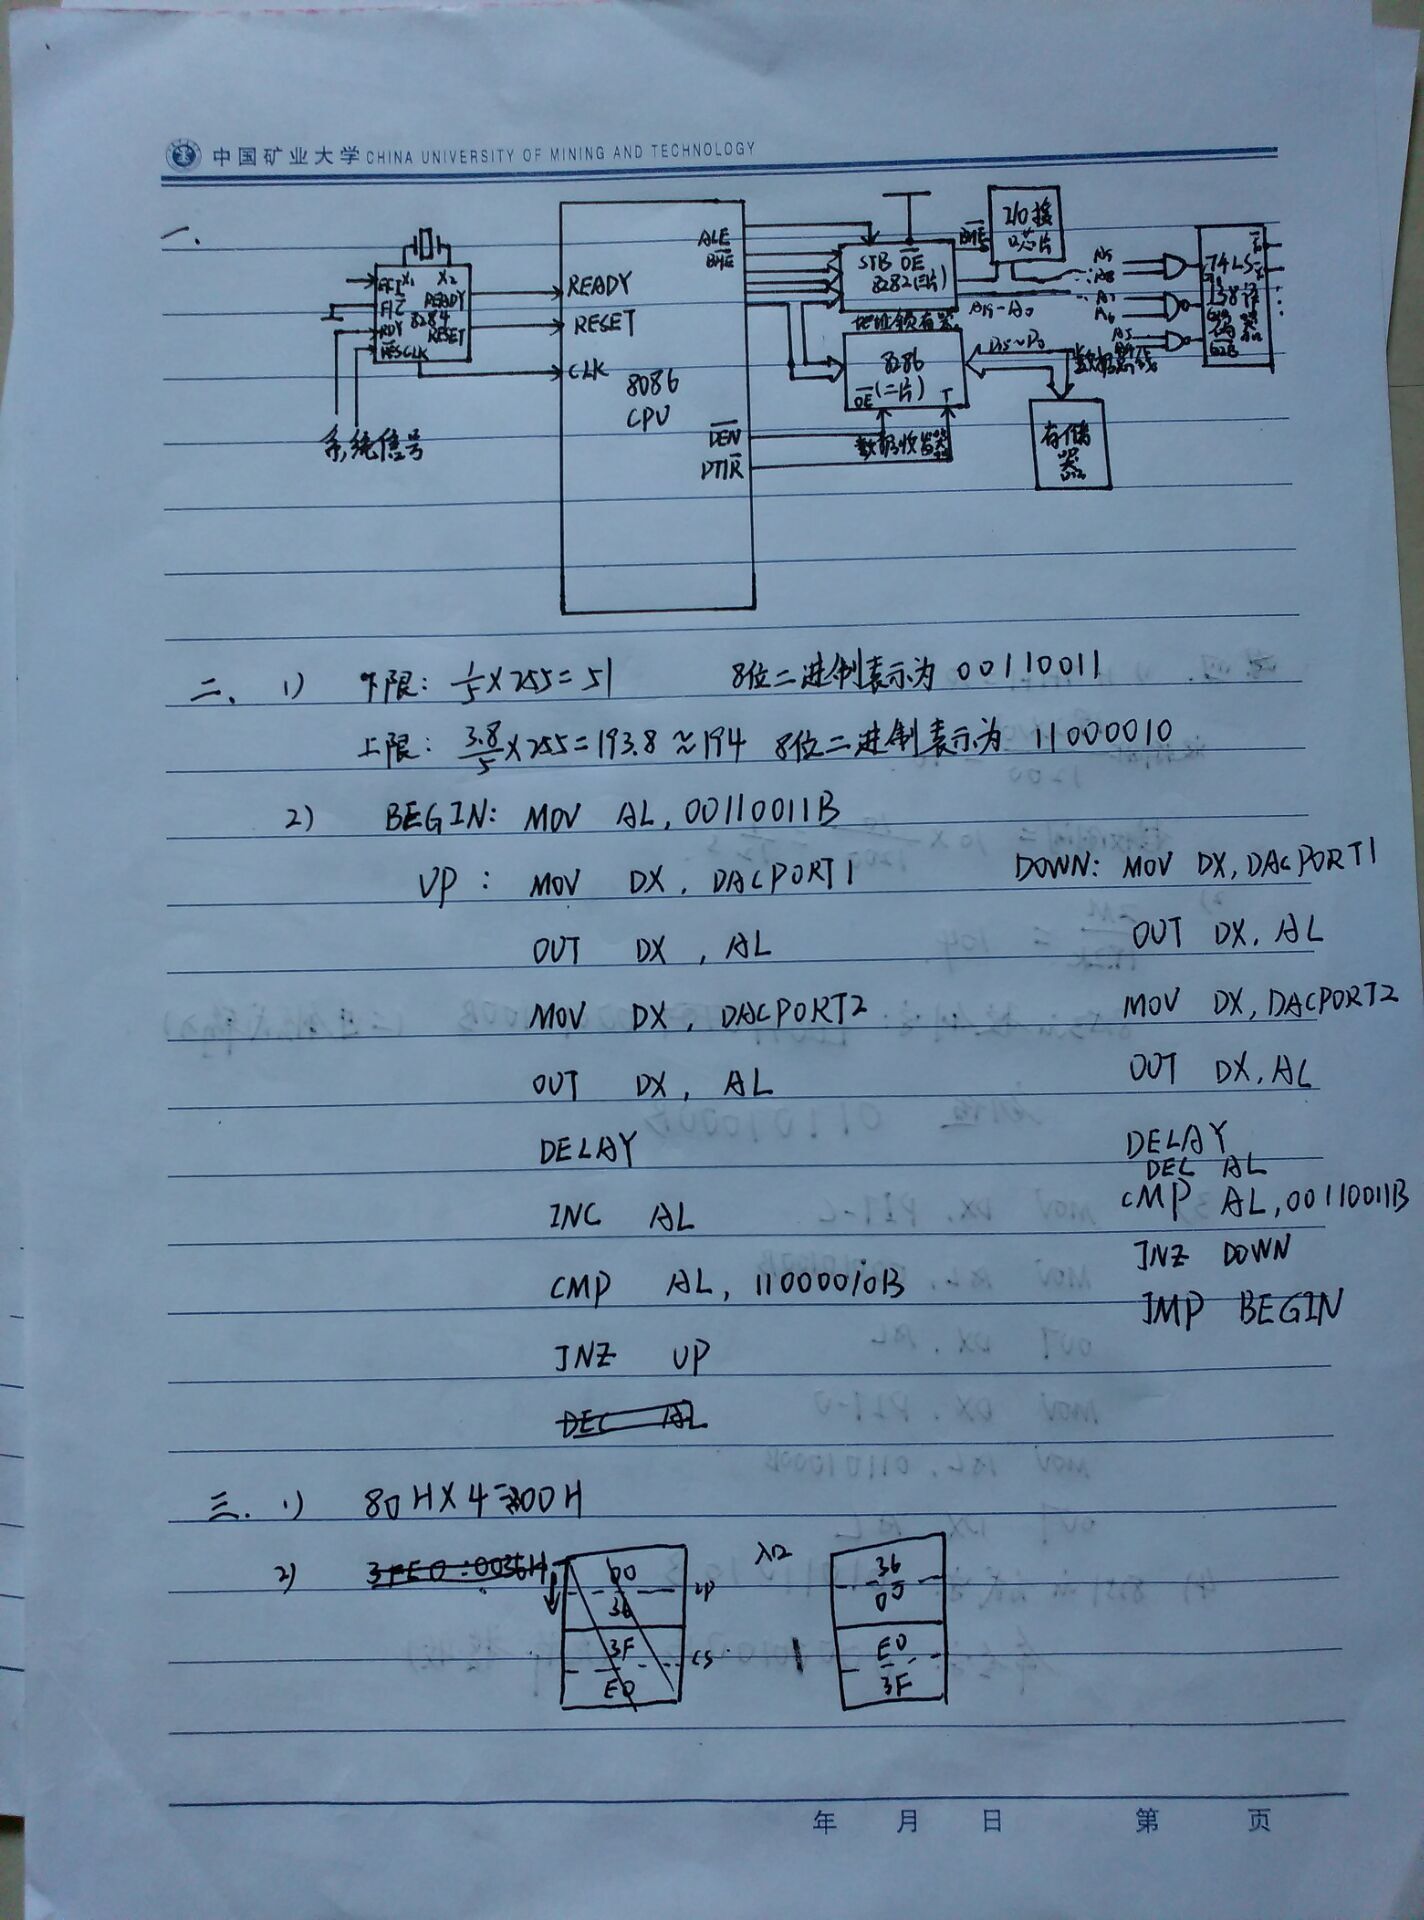 中国矿业大学 CHINA UNIVERSITY OF MINING AND TECHNOLOGY
一、
X1 X2
READY
8284
RESET
RDY
CLK
系统信号
READY
RESET
CLK
8086
CPU
ALE
BHE
DEN
DT/R
STB OE
8282(三片)
地址锁存器
8286
(二片)
OE T
数据收发器
BHE
I/O接
口芯片
A19-A0
D15~D0
数据总线
存储
器
A9
A8
A7
A6
A5
74LS
138译
码器
G2B
二、1) 下限: 1/5×255=51 8位二进制表示为 00110011
上限: 3.8/5×255=193.8≈194 8位二进制表示为 11000010
2) BEGIN: MOV AL, 00110011B
UP: MOV DX, DACPORT1
OUT DX, AL
MOV DX, DACPORT2
OUT DX, AL
DELAY
INC AL
CMP AL, 11000010B
JNZ UP
DEC AL
DOWN: MOV DX, DACPORT1
OUT DX, AL
MOV DX, DACPORT2
OUT DX, AL
DELAY
DEC AL
CMP AL, 00110011B
JNZ DOWN
JMP BEGIN
三、1) 80H×4=200H
2) 3FE0:0036H
00
36
IP
3F
E0
CS
入口
36
00
E0
3F
年 月 日 第 页